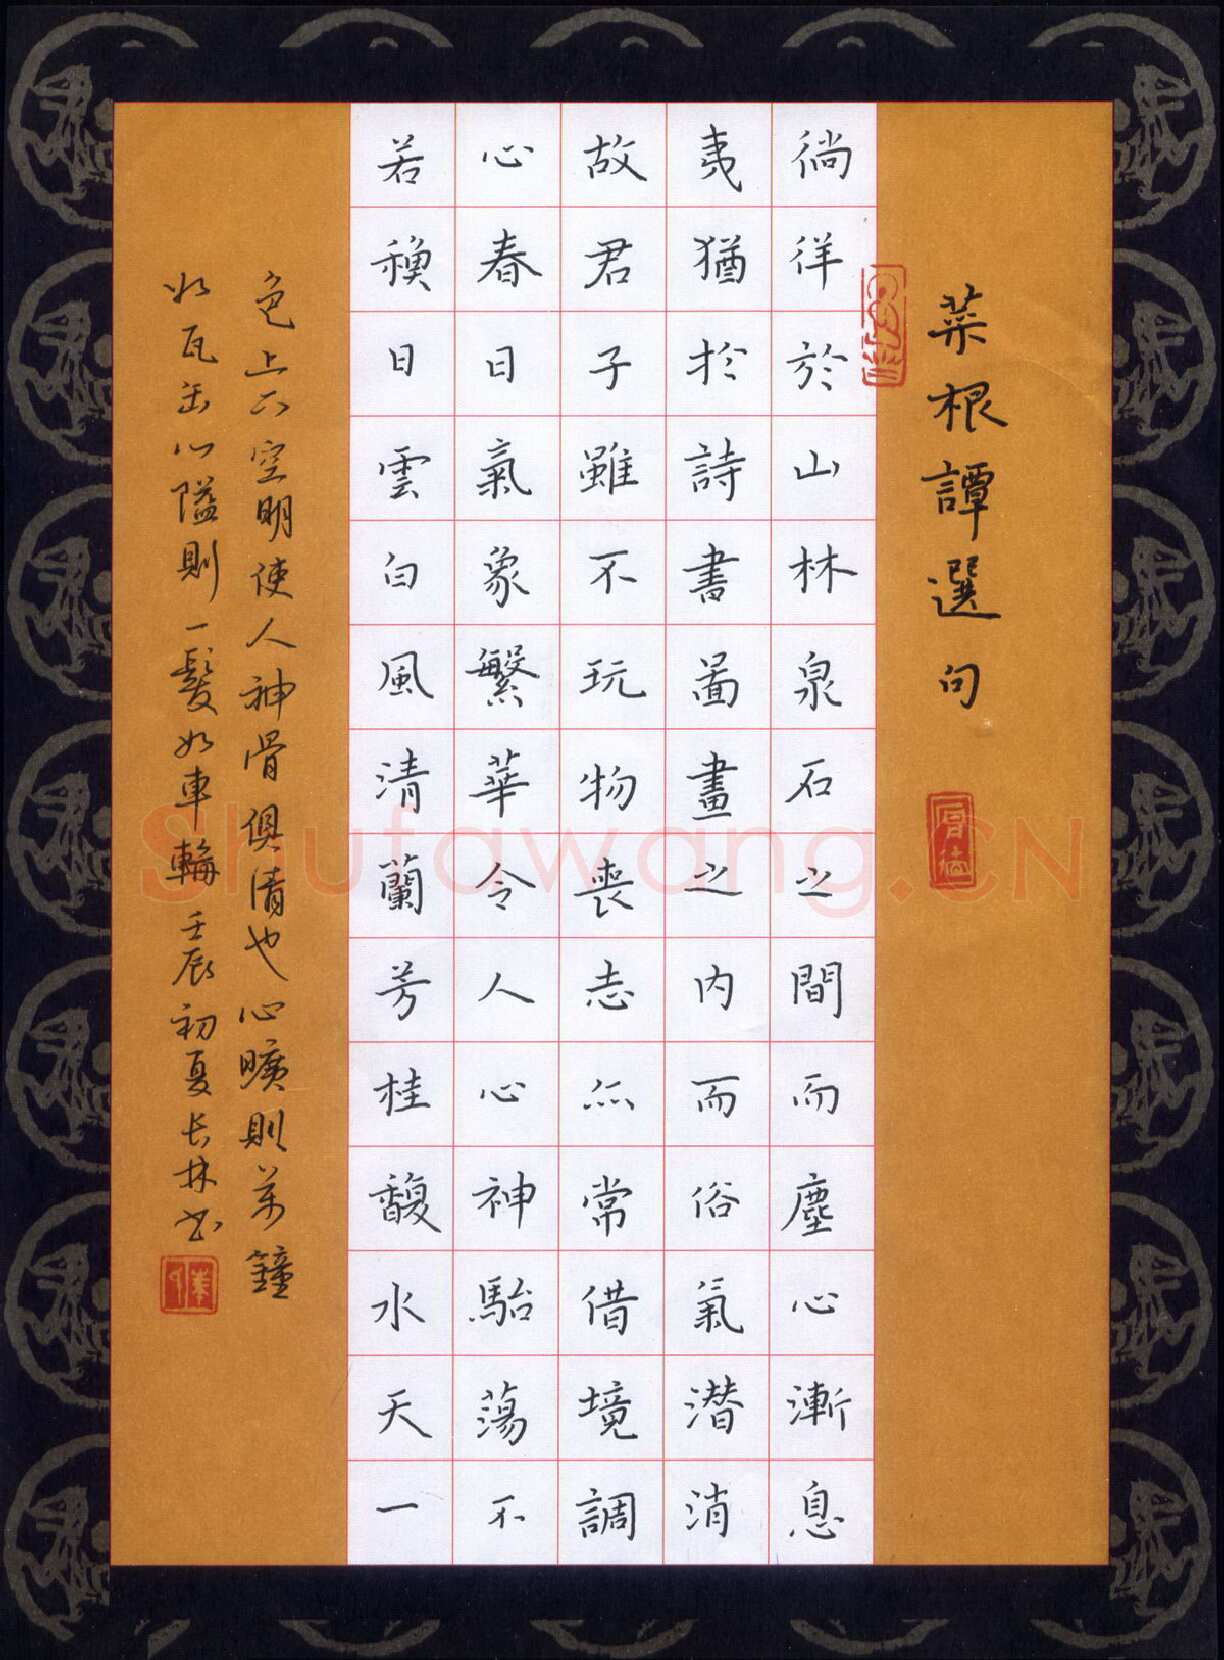 菜根譚選句
徜徉於山林泉石之間而塵心漸息
夷猶於詩書圖畫之內而俗氣潜消
故君子雖不玩物喪志亦常借境調
心春日氣象繁華令人心神駘蕩不
若秋日雲白風清蘭芳桂馥水天一
色上下空明使人神骨俱清也心曠則萬鐘
如瓦缶心隘則一髮如車輪 壬辰初夏长林书
Shufawang.CN